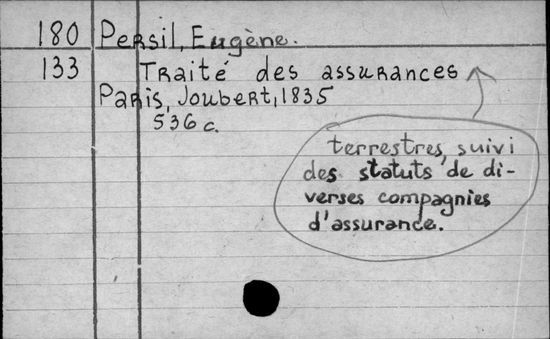 180 Persil, Eugène.
133 Traité des assurances
Paris, Joubert, 1835
536 c.
terrestres, suivi
des statuts de di-
verses compagnies
d'assurance.